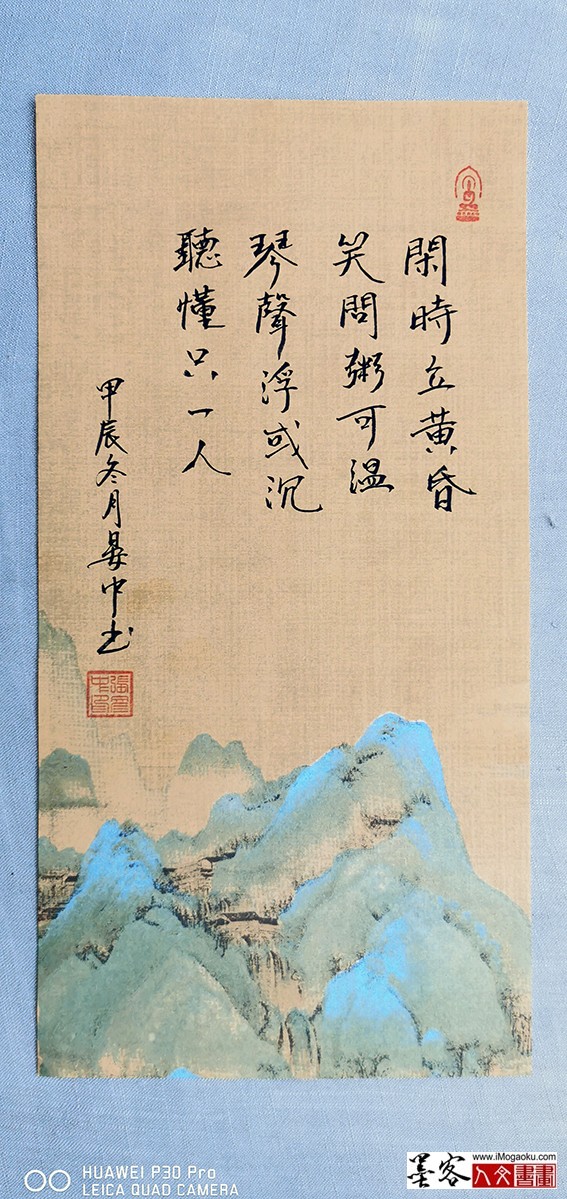 閑時立黄昏
笑問粥可温
琴聲浮或沉
聽懂只一人
甲辰冬月晏中书
HUAWEI P30 Pro
LEICA QUAD CAMERA
墨客
www.iMogaoku.com
人文書畫